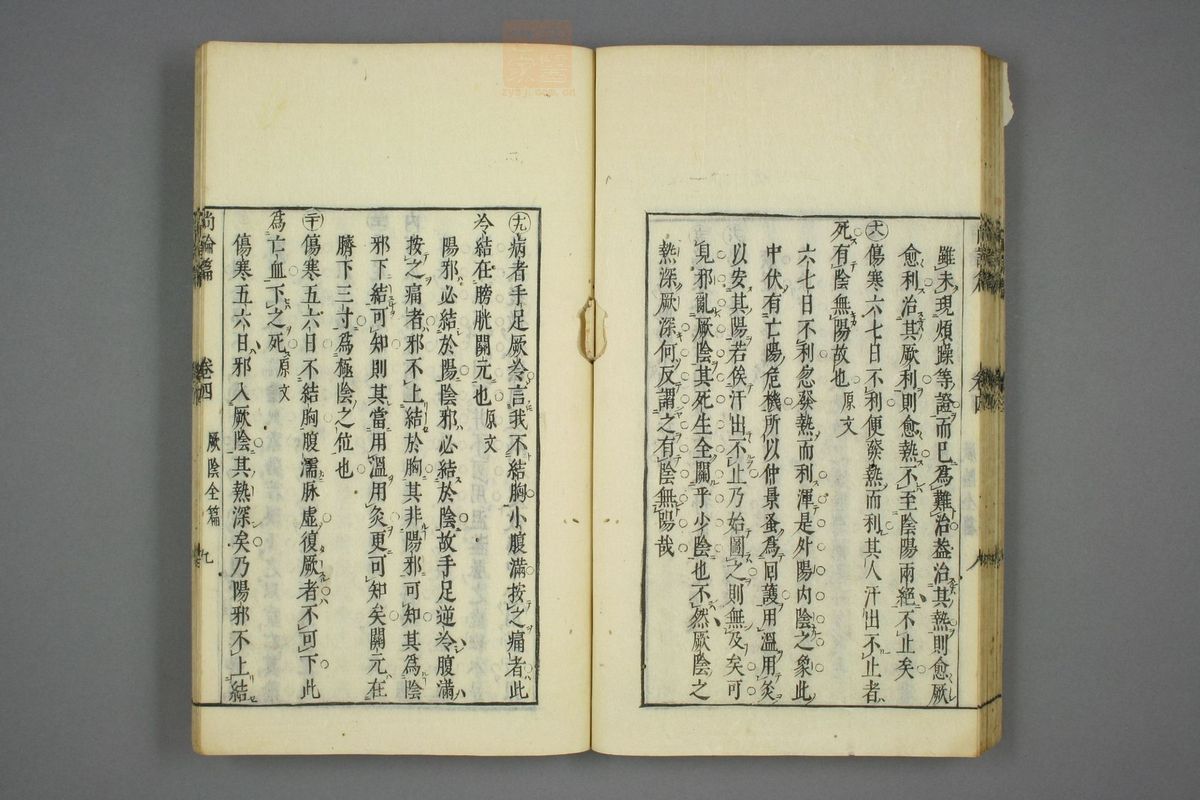 雖未現煩躁等證而已爲難治葢治其熱則愈厥
愈利治其厥利則愈熱不至陰陽兩絕不止矣
㊅傷寒六七日不利便發熱而利其人汗出不止者
死有陰無陽故也 原文
六七日不利忽發熱而利渾是外陽內陰之象此
中伏有亡陽危機所以仲景蚤爲回護用溫用灸
以安其陽若俟汗出不止乃始圖之則無及矣可
見邪亂厥陰其死生全關乎少陰也不然厥陰之
熱深厥深何反謂之有陰無陽哉
病者手足厥冷言我不結胸小腹滿按之痛者此
冷結在膀胱關元也 原文
陽邪必結於陽陰邪必結於陰故手足逆冷腹滿
按之痛者邪不上結於胸其非陽邪可知其爲陰
邪下結可知則其當用溫用灸更可知矣關元在
臍下三寸爲極陰之位也
傷寒五六日不結胸腹濡脉虛復厥者不可下此
爲亡血下之死 原文
傷寒五六日邪入厥陰其熱深矣乃陽邪不上結
尚論篇 卷四 厥陰全篇 九